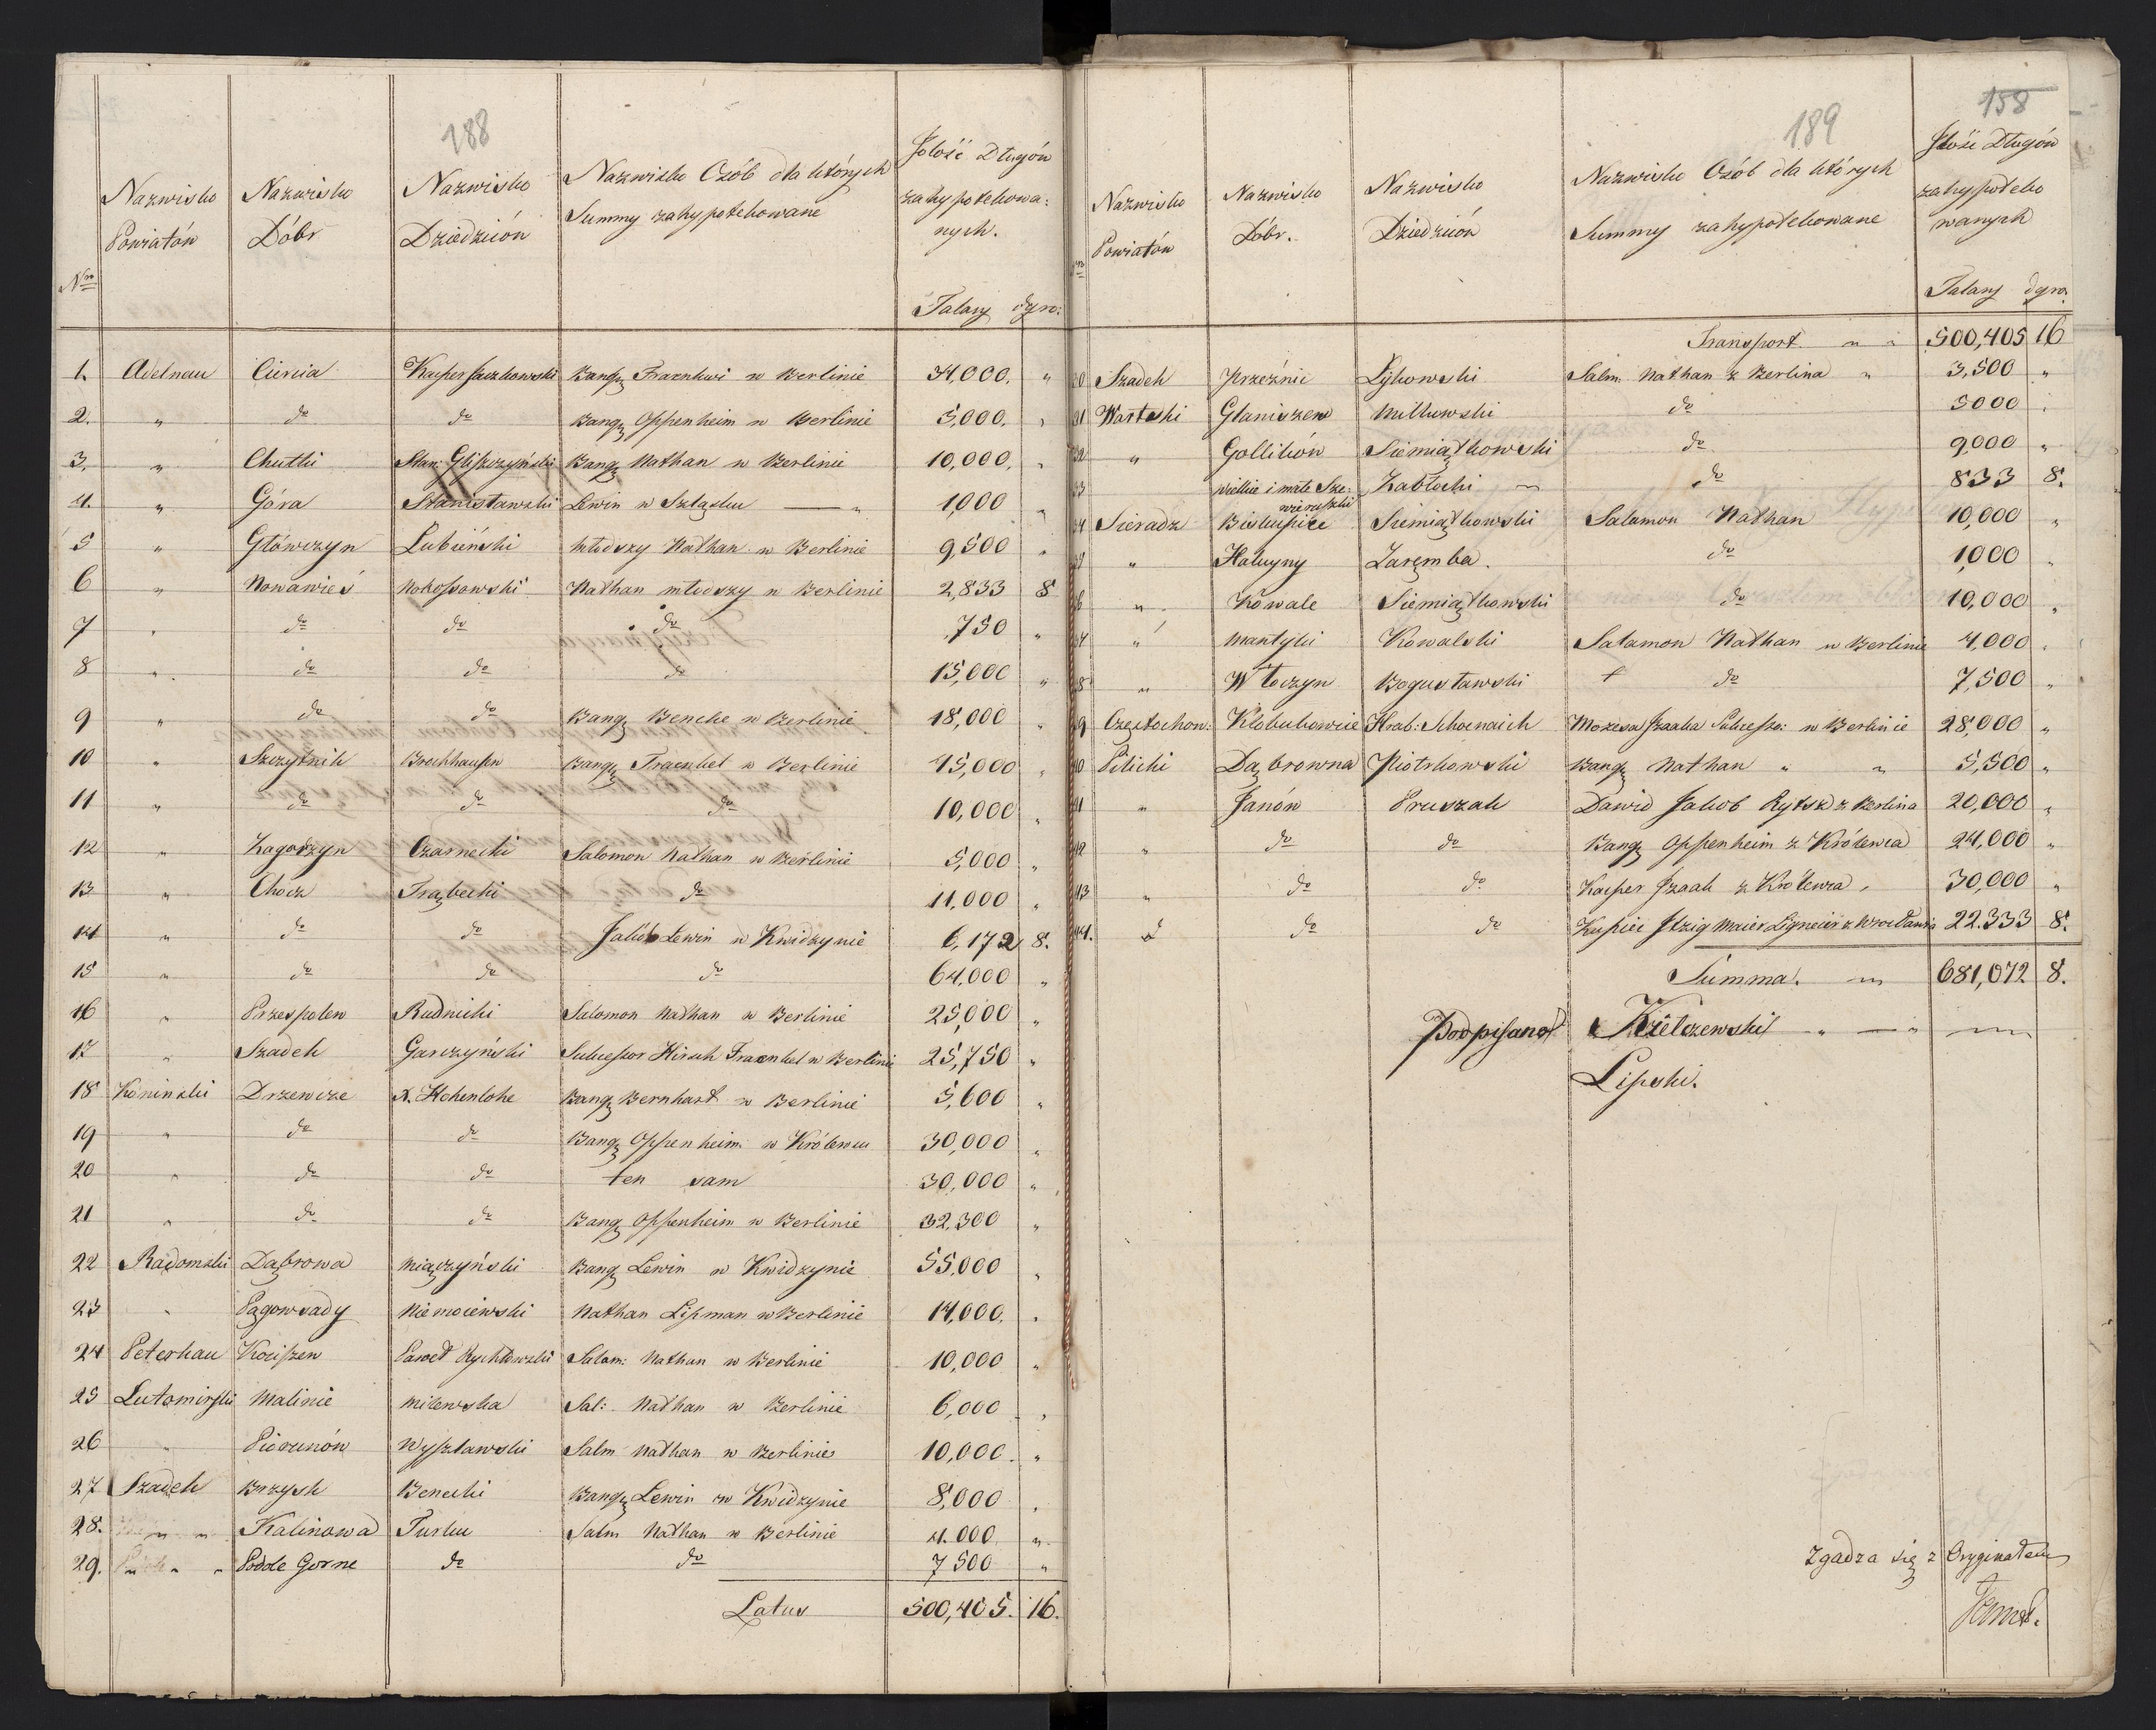 188
Nro
Nazwisko Powiatów
Nazwisko Dóbr
Nazwisko Dziedziców
Nazwisko Osób dla których Summy zahypotekowane
Jlość Długów zahypotekowa: nych.
Talary dgro:
1. Adelnau Ciencia Kacper Jaczkowski Banqr Fraenkwi w Berlinie 34,000. "
2. " do do Banqr Oppenheim w Berlinie 5,000. "
3. " Chutki Stan: Gliszczyński Banqr Nathan w Berlinie 10,000. "
4. " Góra Stanisławski Lewin w Szląsku — " 1,000 "
5 " Główczyn Lubieński młodszy Nathan w Berlinie 9,500 "
6 " Nowawieś Mokossowski Nathan młodszy w Berlinie 2,833 8
7 " do do do 750 "
8 " do do do 15,000 "
9 " do do Banqr Benche w Berlinie 18,000 "
10 " Szczytnik Brochhausen Banqr Fraenkel w Berlinie 45,000 "
11 " do do do 10,000 "
12 " Zagorzyn Czarnecki Salomon Nathan w Berlinie 5,000 "
13 " Chocz Trąbecki do 11,000 "
14 " do do Jakób Lewin w Kwidzynie 6,172 8.
15 " do do do 64,000 "
16 " Przespolew Rudnicki Salomon Nathan w Berlinie 25,000 "
17 " Szadek Garczyński Sukcessor Hirsch Fraenkel w Berlinie 25,750 "
18 Koninski Drzewcze X. Hohenlohe Banqr Bernhart w Berlinie 5,600 "
19 " do do Banqr Oppenheim w Królewcu 30,000 "
20 " do do ten sam 30,000 "
21 " do do Banqr Oppenheim w Berlinie 32,300 "
22 Radomski Dąbrowa Miączyński Banqr Lewin w Kwidzynie 55,000 "
23 " Pągowsady Niemoiewski Nathan Lipman w Berlinie 14,000. "
24 Peterkau Kociszew Paweł Rychłowski Salom: Nathan w Berlinie 10,000 "
25 Lutomirski Malinie Milewska Sal: Nathan w Berlinie 6,000 "
26 " Piorunów Wyszławski Salm Nathan w Berlinie 10,000. "
27 Szadek Brzysk Benecki Banqr Lewin w Kwidzynie 8,000 "
28. " " Kalinowa Turku Salm Nathan w Berlinie 4.000 "
29. " " Poddle Gorne do do 7500 "
Latus 500,405. 16.
189
158
Nro
Nazwisko Powiatów
Nazwisko Dóbr.
Nazwisko Dziedziców
Nazwisko Osób dla których Summy zahypotekowane
Jlość Długów zahypoteko wanych
Talary dgro.
Transport " " 500,405 16
30 Szadek Przeźnic Łykowski Salm. Nathan z Berlina " 3,500 "
31 Wartski Glaniszew Milkowski do 5000 "
32 " Gollików Siemiątkowski do 9,000 "
33 wielkie i małe Skę: wieruszki Zabłocki " do 833 8.
34 Sieradz Biskupice Siemiątkowski Salamon Nathan 10,000 "
35 " Haluyny Zaręmba. do 1,000 "
36 " Kowale Siemiątkowski do 10,000 "
37 " Mantyki Kowalski Salamon Nathan w Berlinie 4,000 "
38 " Włoczyn Bogusławski + do 7,500 "
39 Częstochow: Kłobukowice Hrab: Schoenaich Mozesa Jzaaka Sukcesso: w Berlinie 28,000 "
40 Pilicki Dąbrowna Piotrkowski Banqr Nathan " " 5,500 "
41 " Janów Pruszak Dawid Jakob Rytsz z Berlina 20,000 "
42 " do do Banqr Oppenheim z Królewca 24,000 "
43 " do do Kasper Jzaak z Królewca, 30,000 "
44. do do Kupiec Jtzig Maier z Wrocławia 22.333 8.
Summa. " 681,072 8.
Podpisano Kielczewski " — " —
Lipski.
Zgadza się z Oryginałem